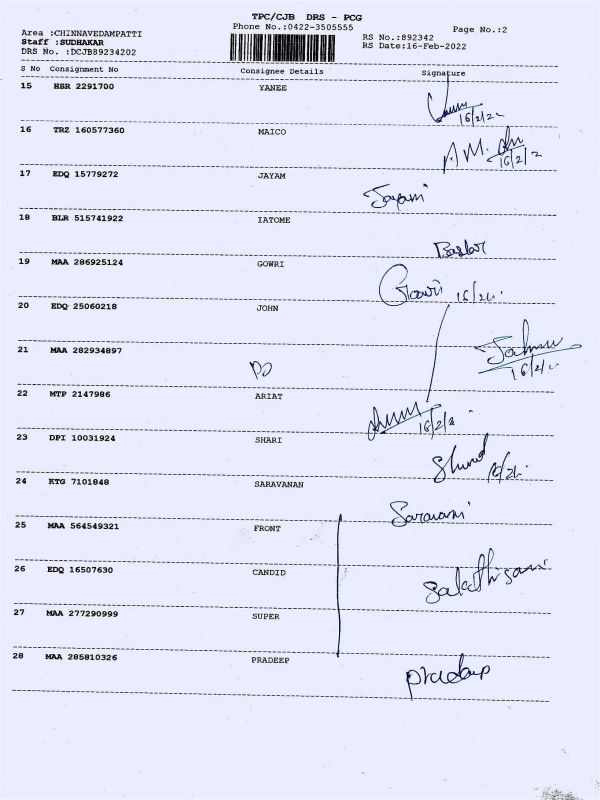 TPC/CJB DRS - PCG
Phone No.:0422-3505555
Page No.:2
Area :CHINNAVEDAMPATTI
Staff :SUDHAKAR
DRS No. :DCJB89234202
RS No.:892342
RS Date:16-Feb-2022
S No Consignment No Consignee Details Signature
15 HSR 2291700 YANEE
16/2/22
16 TRZ 160577360 MAICO
A M.
16/2/2
17 EDQ 15779272 JAYAM
Jayam
18 BLR 515741922 IATOME
Baskar
19 MAA 286925124 GOWRI
Gowri 16/2/22.
20 EDQ 25060218 JOHN
21 MAA 282934897
DO
16/2/2
22 MTP 2147986 ARIAT
16/2/2
23 DPI 10031924 SHARI
24 KTG 7101848 SARAVANAN
25 MAA 564549321 FRONT
26 EDQ 16507630 CANDID
27 MAA 277290999 SUPER
28 MAA 285810326 PRADEEP
Pradeep